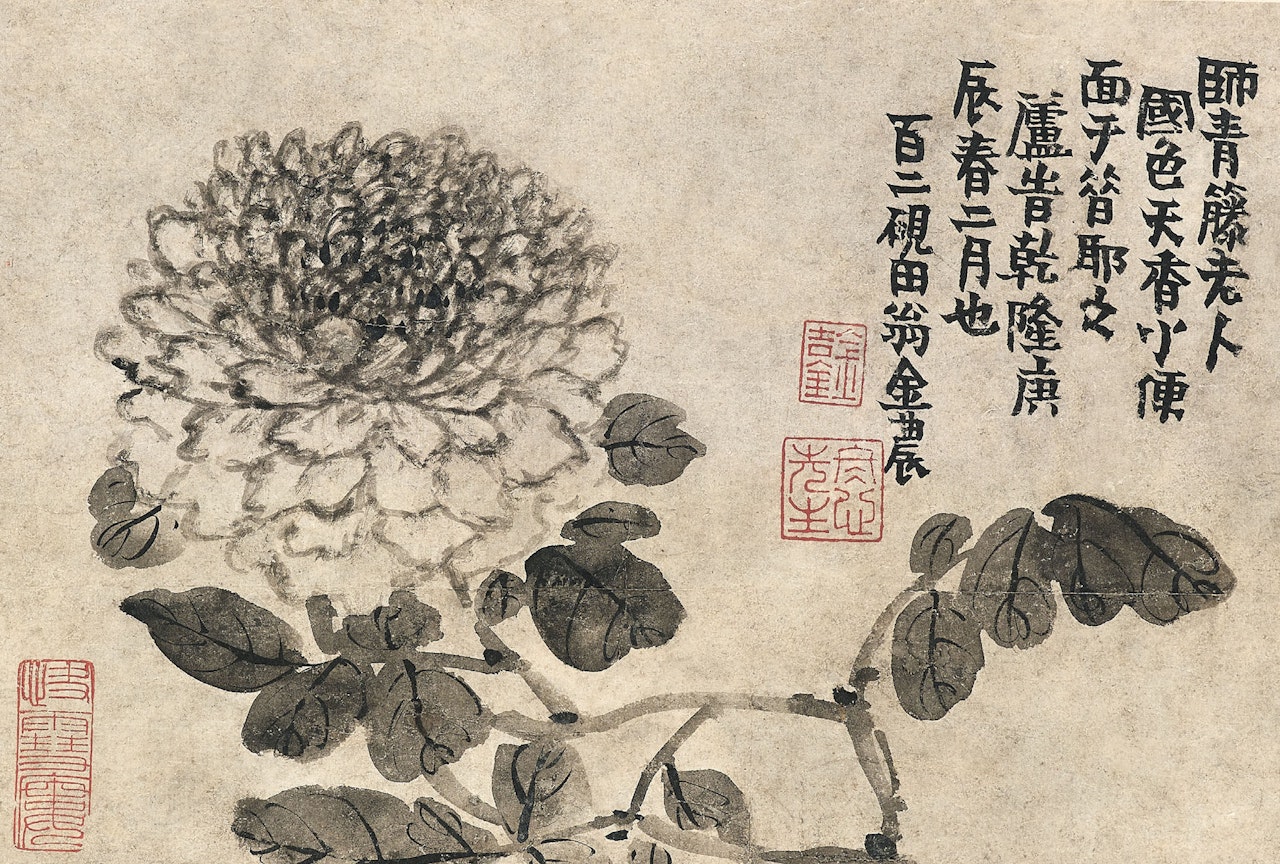 師青籐老人
國色天香小便
面于昔耶之
廬旹乾隆庚
辰春二月也
百二硯田翁金農
冬心先生